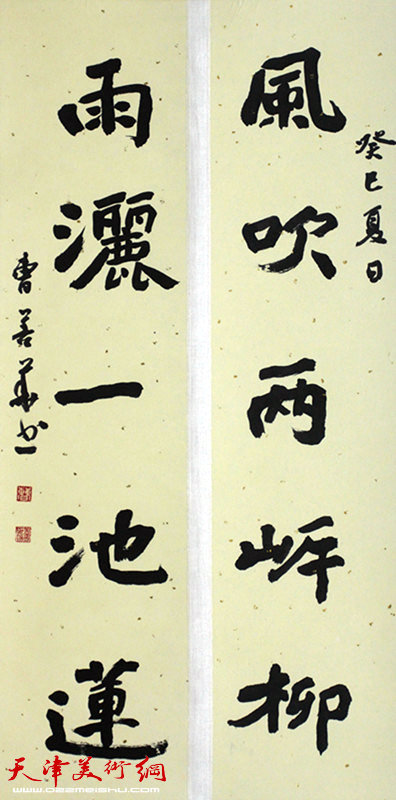 癸巳夏日
風吹两岸柳
雨灑一池蓮
曹善華书
天津美術網
www.022meishu.com